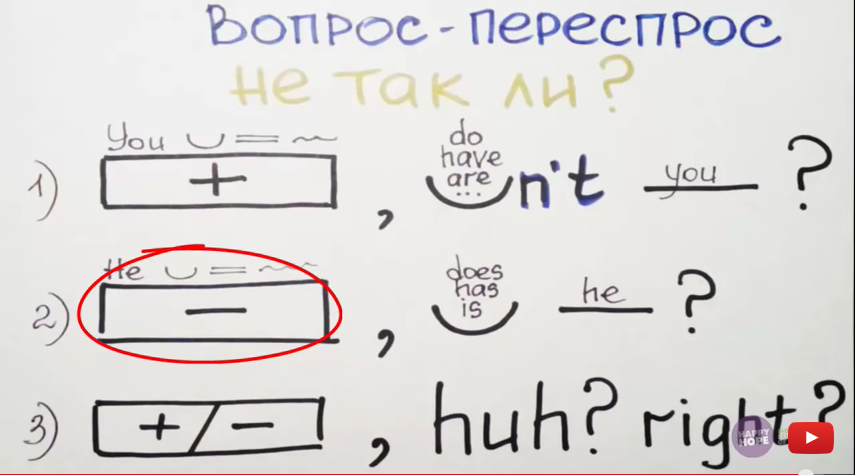 Вопрос - переспрос
не так ли?
You
do
have
are
...
1) + , n't you ?
He
does
has
is
2) — , he ?
3) +/- , huh? right?
HAPPY
HOPE